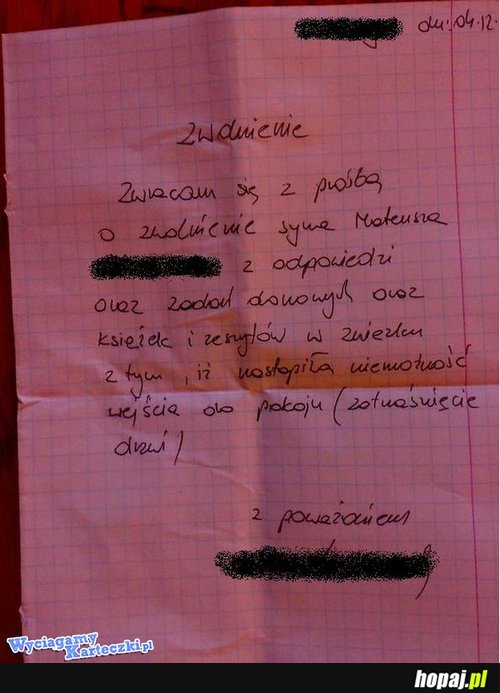 dn. 04.12.
Zwolnienie
Zwracam się z prośbą
o zwolnienie syna Mateusza
z odpowiedzi
oraz zadań domowych oraz
książek i zeszytów w związku
z tym, iż nastąpiła niemożność
wejścia do pokoju (zatrzaśnięcie
drzwi)
z poważaniem
Wyciągamy
Karteczki.pl
hopaj.pl